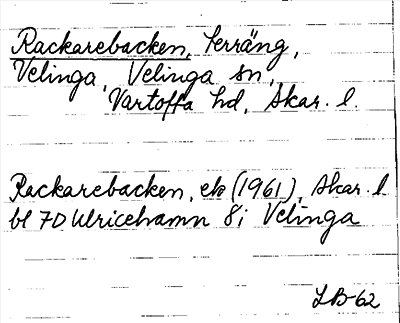 Rackarebacken, Terräng,
Velinga, Velinga sn,
Vartofta hd, Skar. l.
Rackarebacken, ek (1961), Skar. l.
bl 7D Ulricehamn 8i Velinga
LB-62